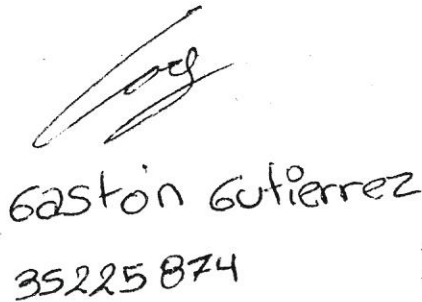 Gastón Gutierrez
35225874